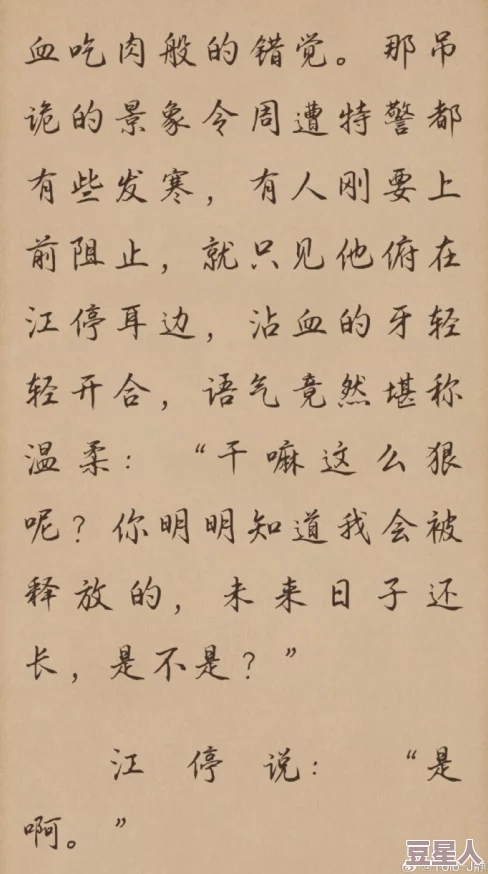 血吃肉般的错觉。那吊
诡的景象令周遭特警都
有些发寒，有人刚要上
前阻止，就只见他俯在
江停耳边，沾血的牙轻
轻开合，语气竟然堪称
温柔：“干嘛这么狠
呢？你明明知道我会被
释放的，未来日子还
长，是不是？”
江停说：“是
啊。”
豆星人